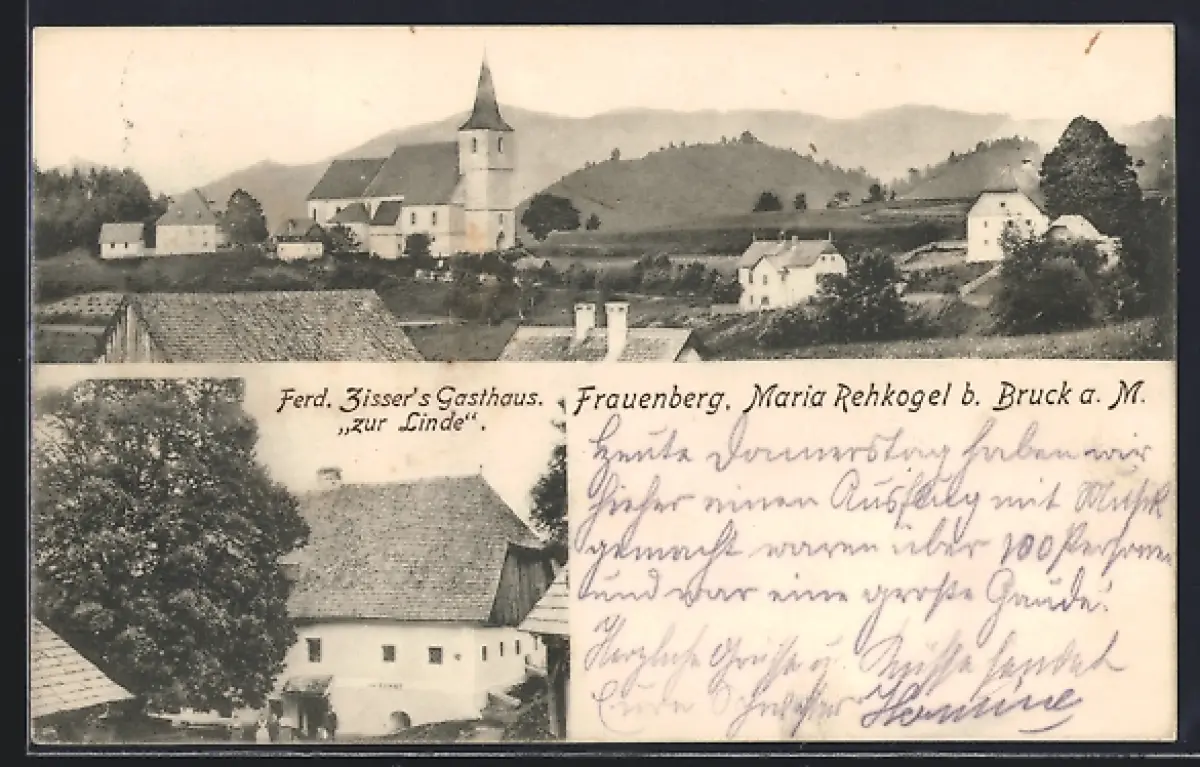 Ferd. Zisser's Gasthaus.
„zur Linde".
Frauenberg, Maria Rehkogel b. Bruck a. M.
Heute Donnerstag haben wir
hieher einen Ausflug mit Musik
gemacht waren über 100 Personen
und war eine große Gaude.
Herzliche Grüsse u. Küsse sendet
Eure Schwester